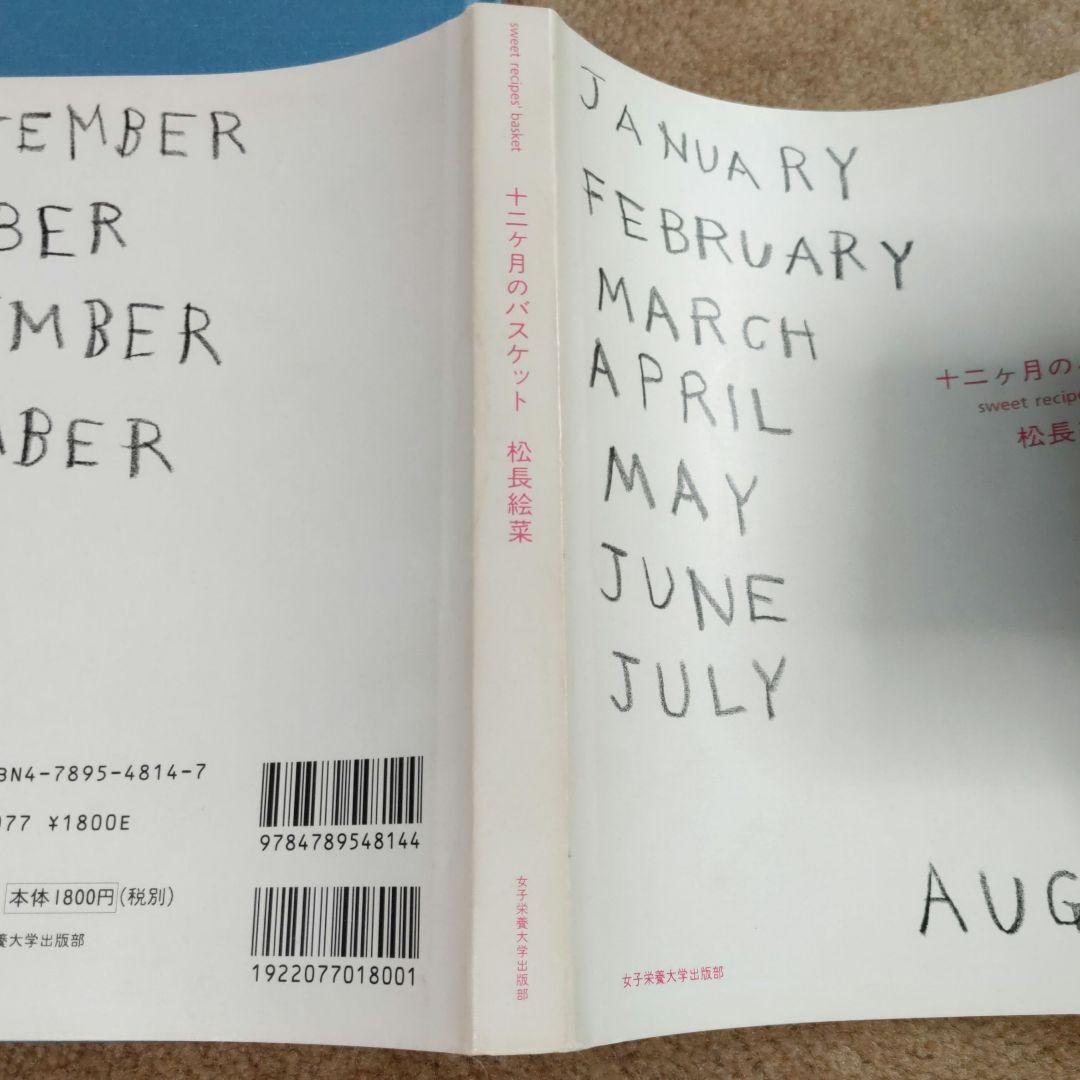 TEMBER
BER
MBER
BER
BN4-7895-4814-7
077 ¥1800E
本体1800円(税別)
養大学出版部
9784789548144
1922077018001
sweet recipes' basket 十二ヶ月のバスケット 松長絵菜
女子栄養大学出版部
JANUARY
FEBRUARY
MARCH
APRIL
MAY
JUNE
JULY
AUG
十二ヶ月の
sweet recipe
松長
女子栄養大学出版部